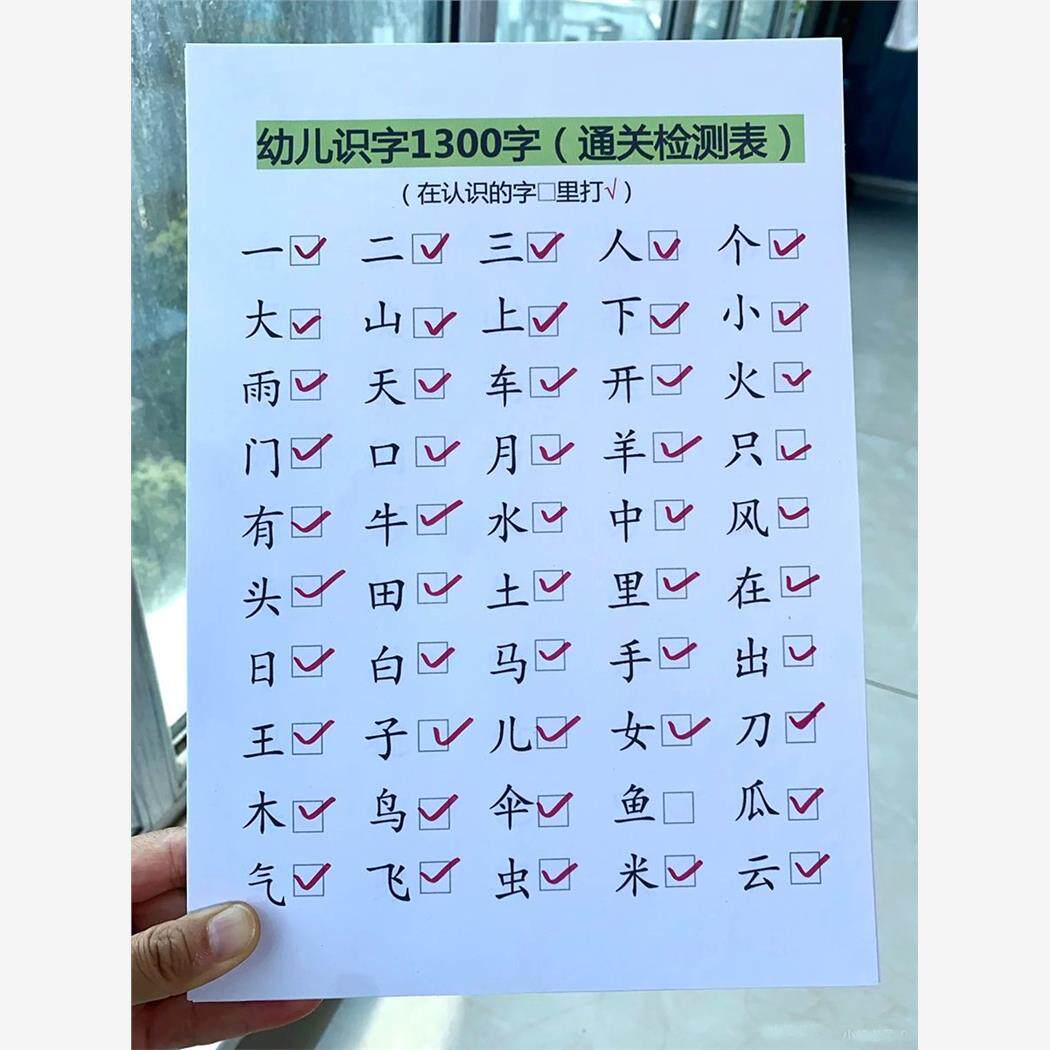 幼儿识字1300字（通关检测表）
（在认识的字□里打√）
一☑ 二☑ 三☑ 人☑ 个☑
大☑ 山☑ 上☑ 下☑ 小☑
雨☑ 天☑ 车☑ 开☑ 火☑
门☑ 口☑ 月☑ 羊☑ 只☑
有☑ 牛☑ 水☑ 中☑ 风☑
头☑ 田☑ 土☑ 里☑ 在☑
日☑ 白☑ 马☑ 手☑ 出☑
王☑ 子☑ 儿☑ 女☑ 刀☑
木☑ 鸟☑ 伞☑ 鱼□ 瓜☑
气☑ 飞☑ 虫☑ 米☑ 云☑